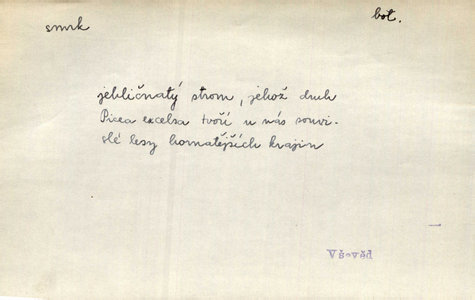 smrk
bot.
jehličnatý strom, jehož druh
Picea excelsa tvoří u nás souvi-
slé lesy hornatějších krajin
Všověd